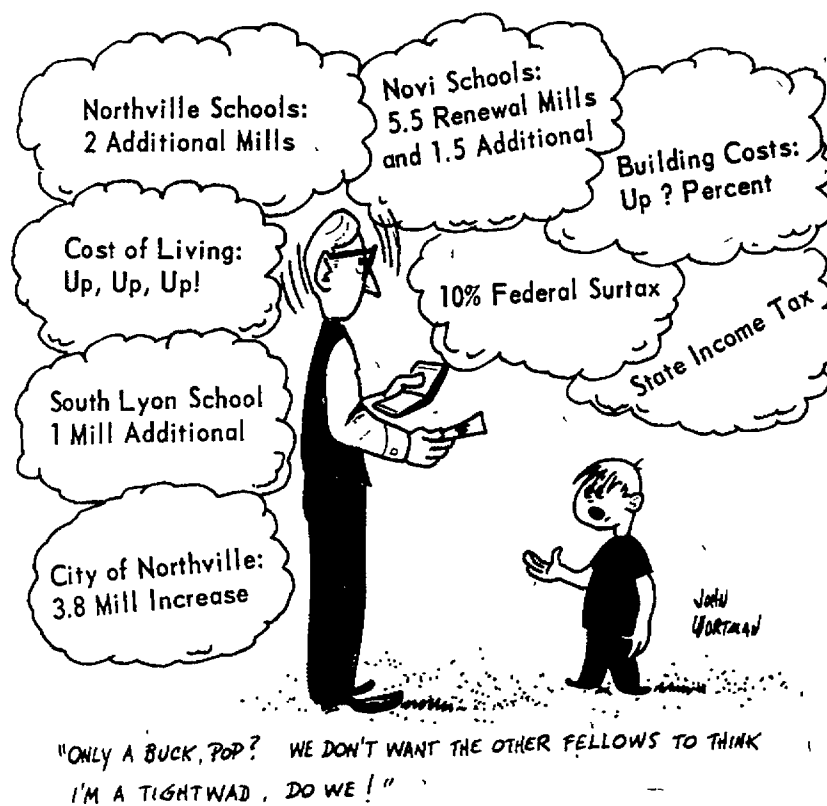 Northville Schools:
2 Additional Mills
Novi Schools:
5.5 Renewal Mills
and 1.5 Additional
Building Costs:
Up ? Percent
Cost of Living:
Up, Up, Up!
10% Federal Surtax
State Income Tax
South Lyon School
1 Mill Additional
City of Northville:
3.8 Mill Increase
JOHN
WORTMAN
"ONLY A BUCK, POP? WE DON'T WANT THE OTHER FELLOWS TO THINK
I'M A TIGHTWAD, DO WE!"